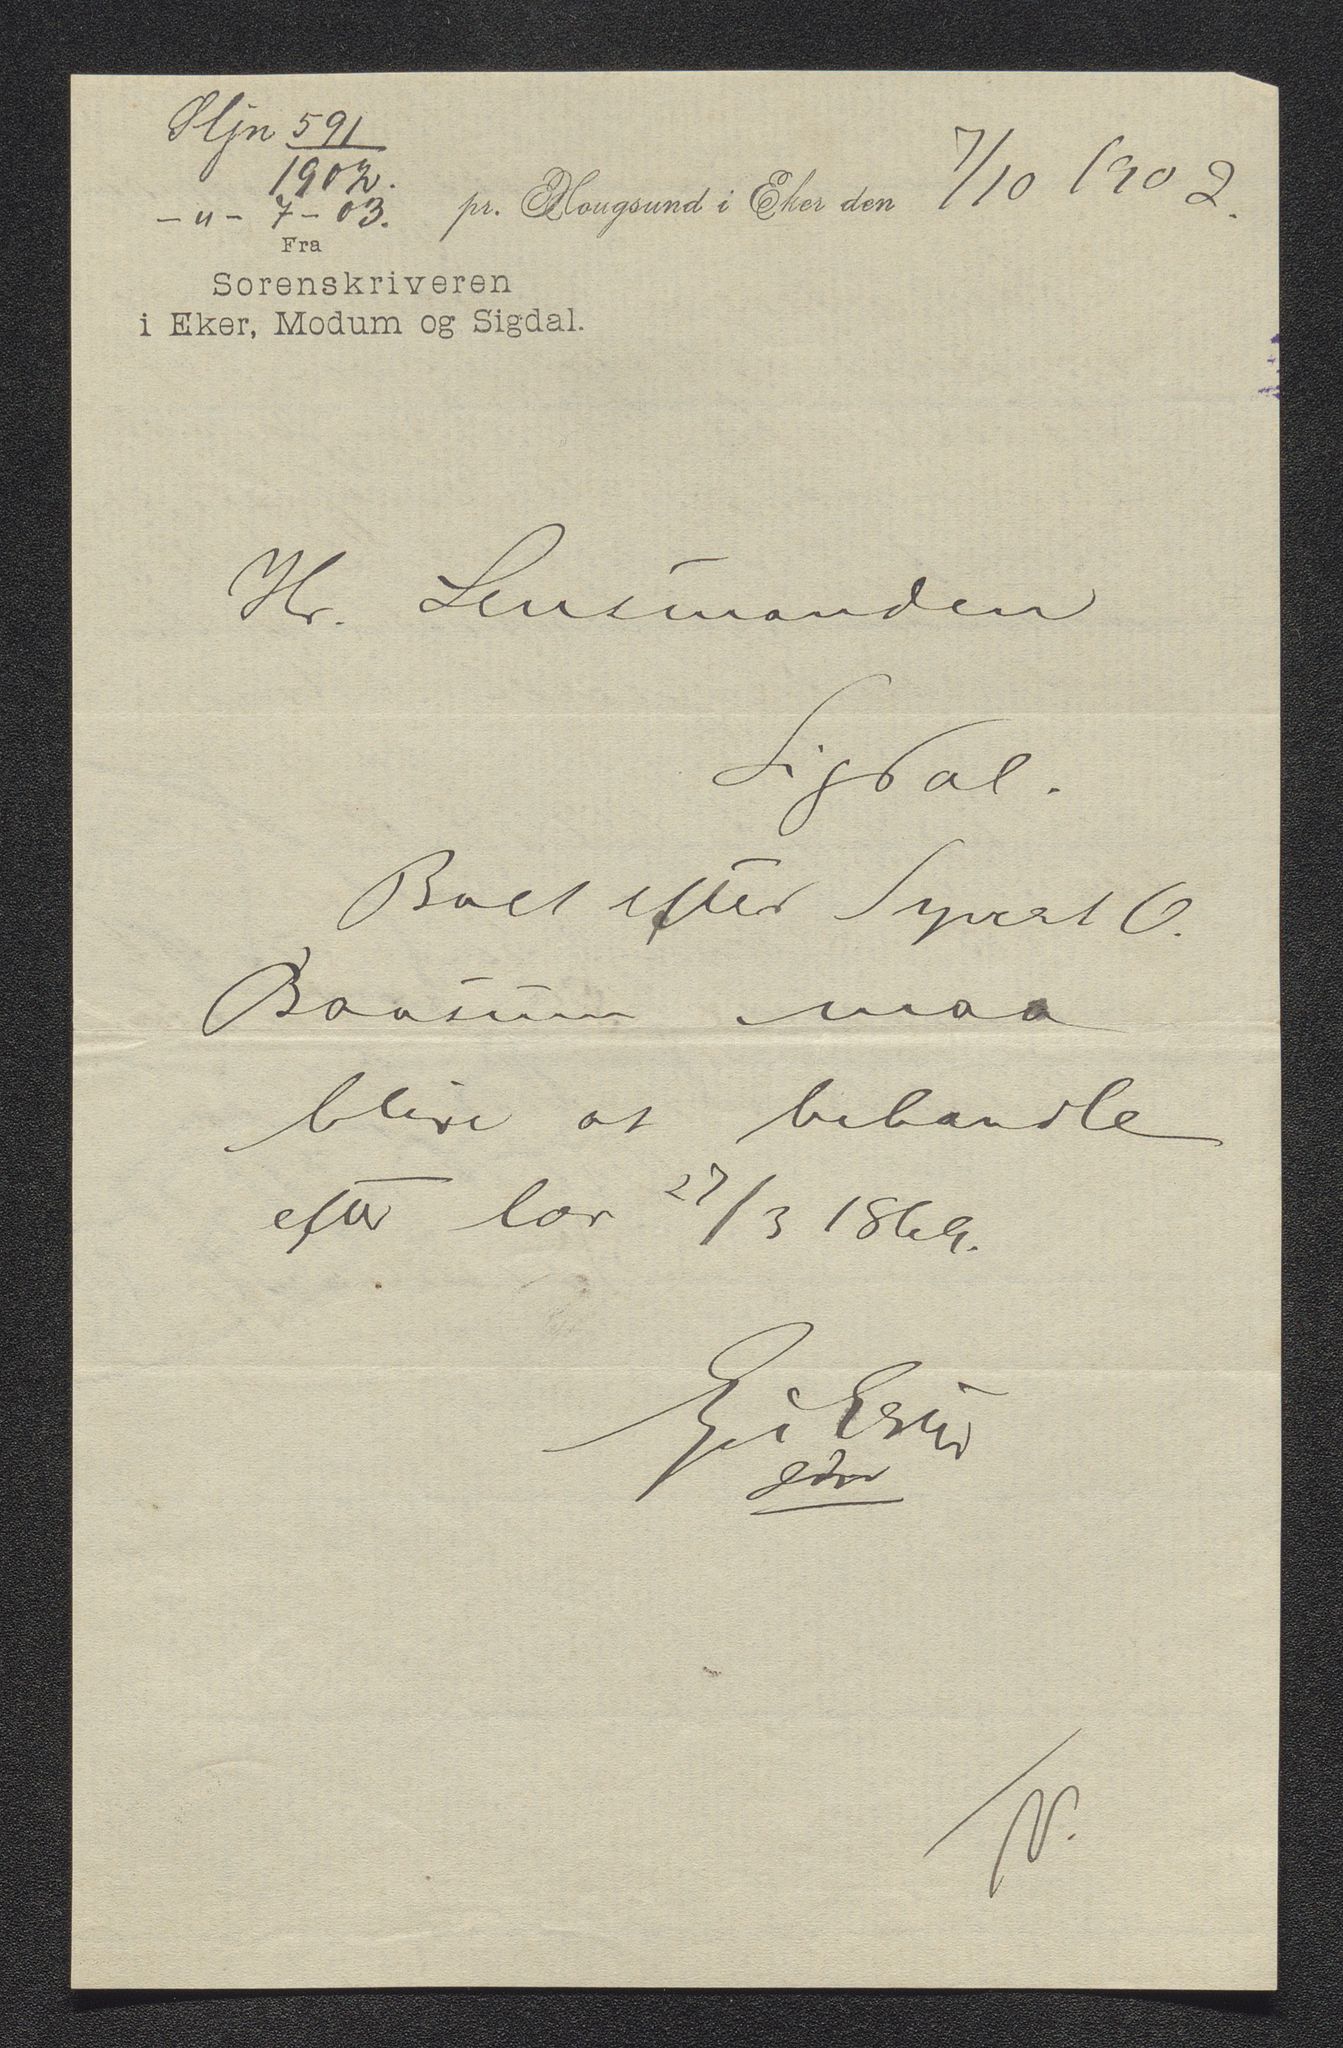 Skjn 591
1902.
-"- 7-03.
pr. Hougsund i Eker den 7/10 1902.
Fra
Sorenskriveren
i Eker, Modum og Sigdal.
Hr. Lensmanden
Sigdal.
Boet efter Syvert O.
Baasum maa
blive at behandle
efter lov 27/3 1869.